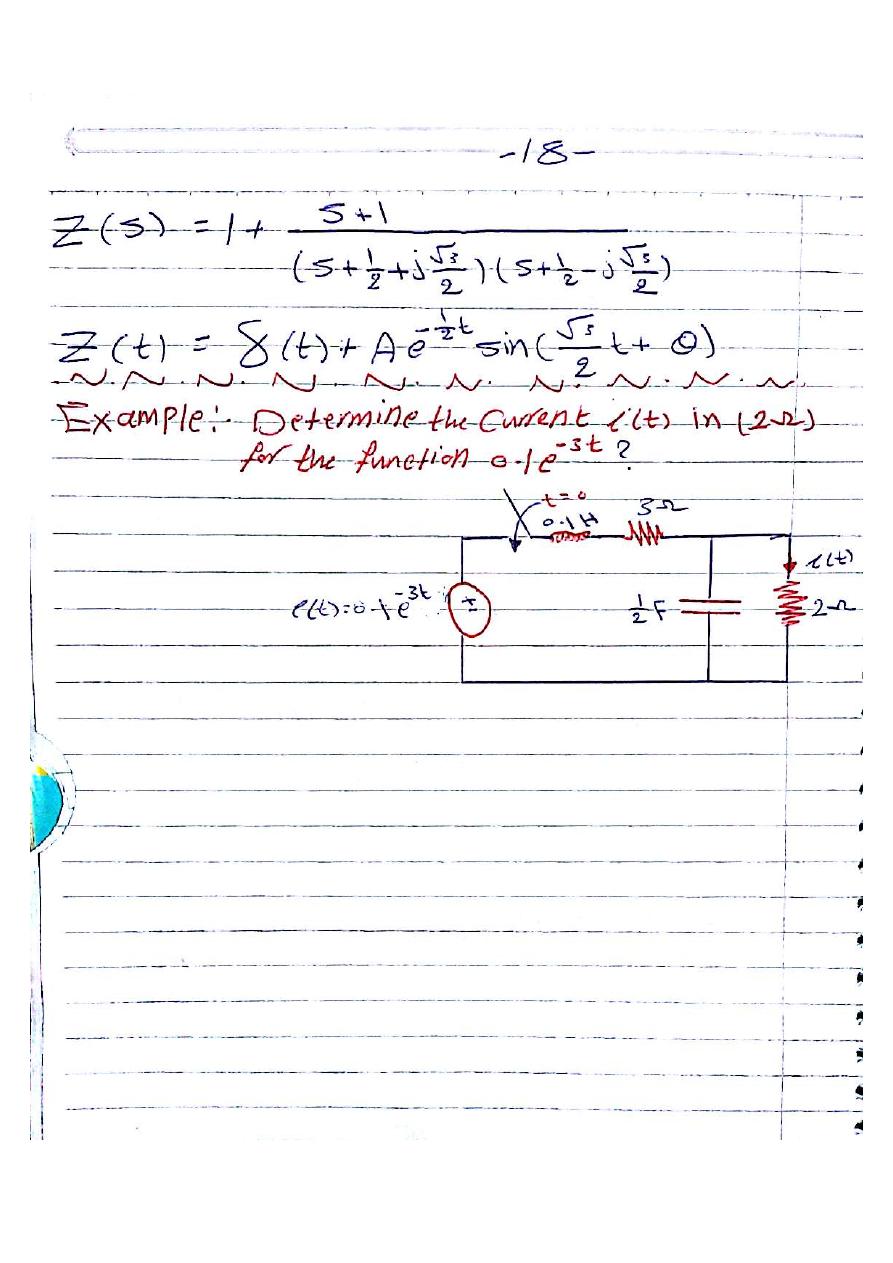 -18-
Z(s) = 1 + (s+1) / ((s+1/2+j√3/2)(s+1/2-j√3/2))
Z(t) = δ(t) + A e^{-1/2 t} sin(√3/2 t + θ)
Example:- Determine the Current i(t) in (2Ω)
for the function 0.1e^{-3t} ?
t=0
0.1H 3Ω
i(t)
e(t)=0.1e^{-3t} ± 1/2 F 2Ω